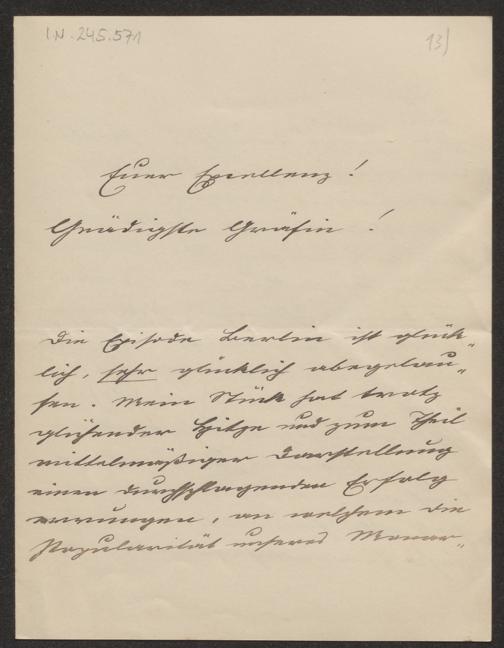 I.N. 245.571
13)
Euer Excellenz!
Gnädigste Gräfin!
Die Episode Berlin ist glück-
lich, sehr glücklich abgelau-
fen. Mein Stück hat trotz
glühender Hitze und zum Theil
mittelmäßiger Darstellung
einen durchschlagenden Erfolg
errungen, an welchem die
Popularität unseres Monar-